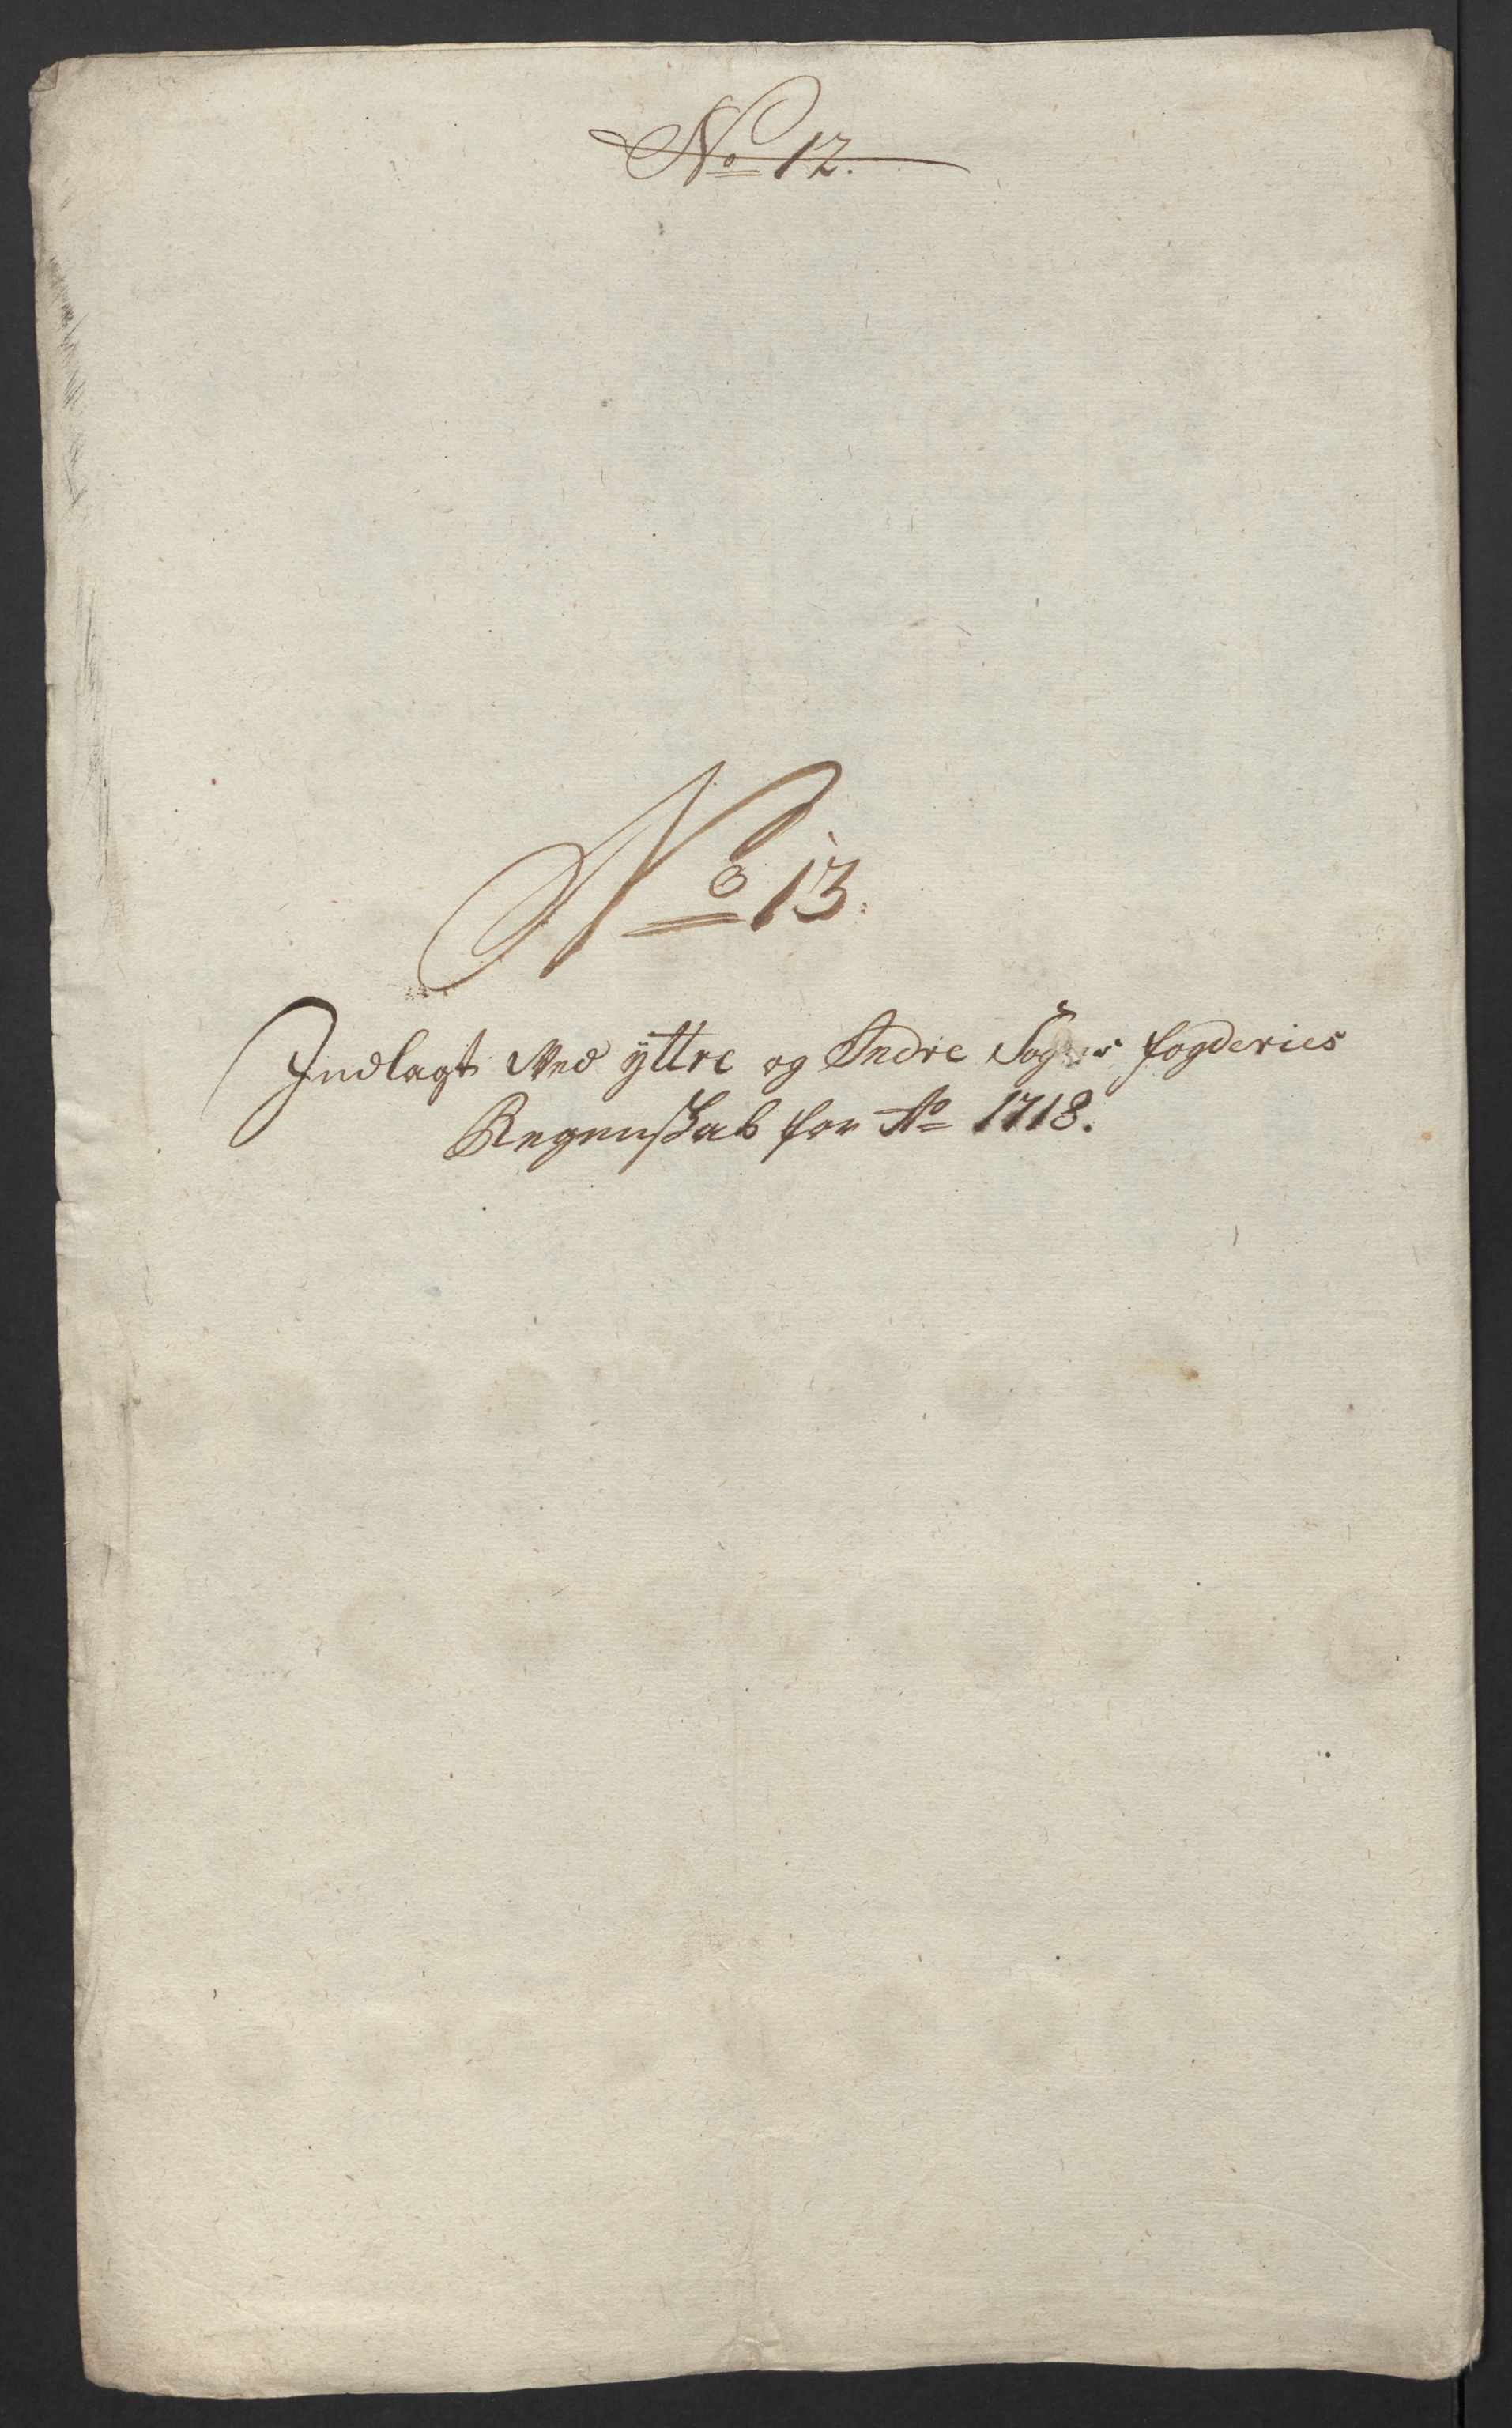 No 12.
No 13.
Indlagt Ved ÿttre og Indre Sogns fogderies
Regenskab for Ao 1718.